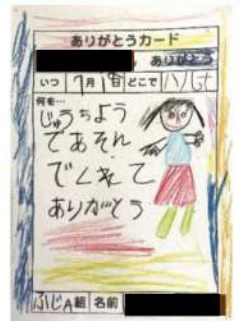 ありがとうカード
ありがとう
いつ 7月18日 どこで
何を…
じゅうちよう
であそん
でくれて
ありがとう
ふじA組 名前